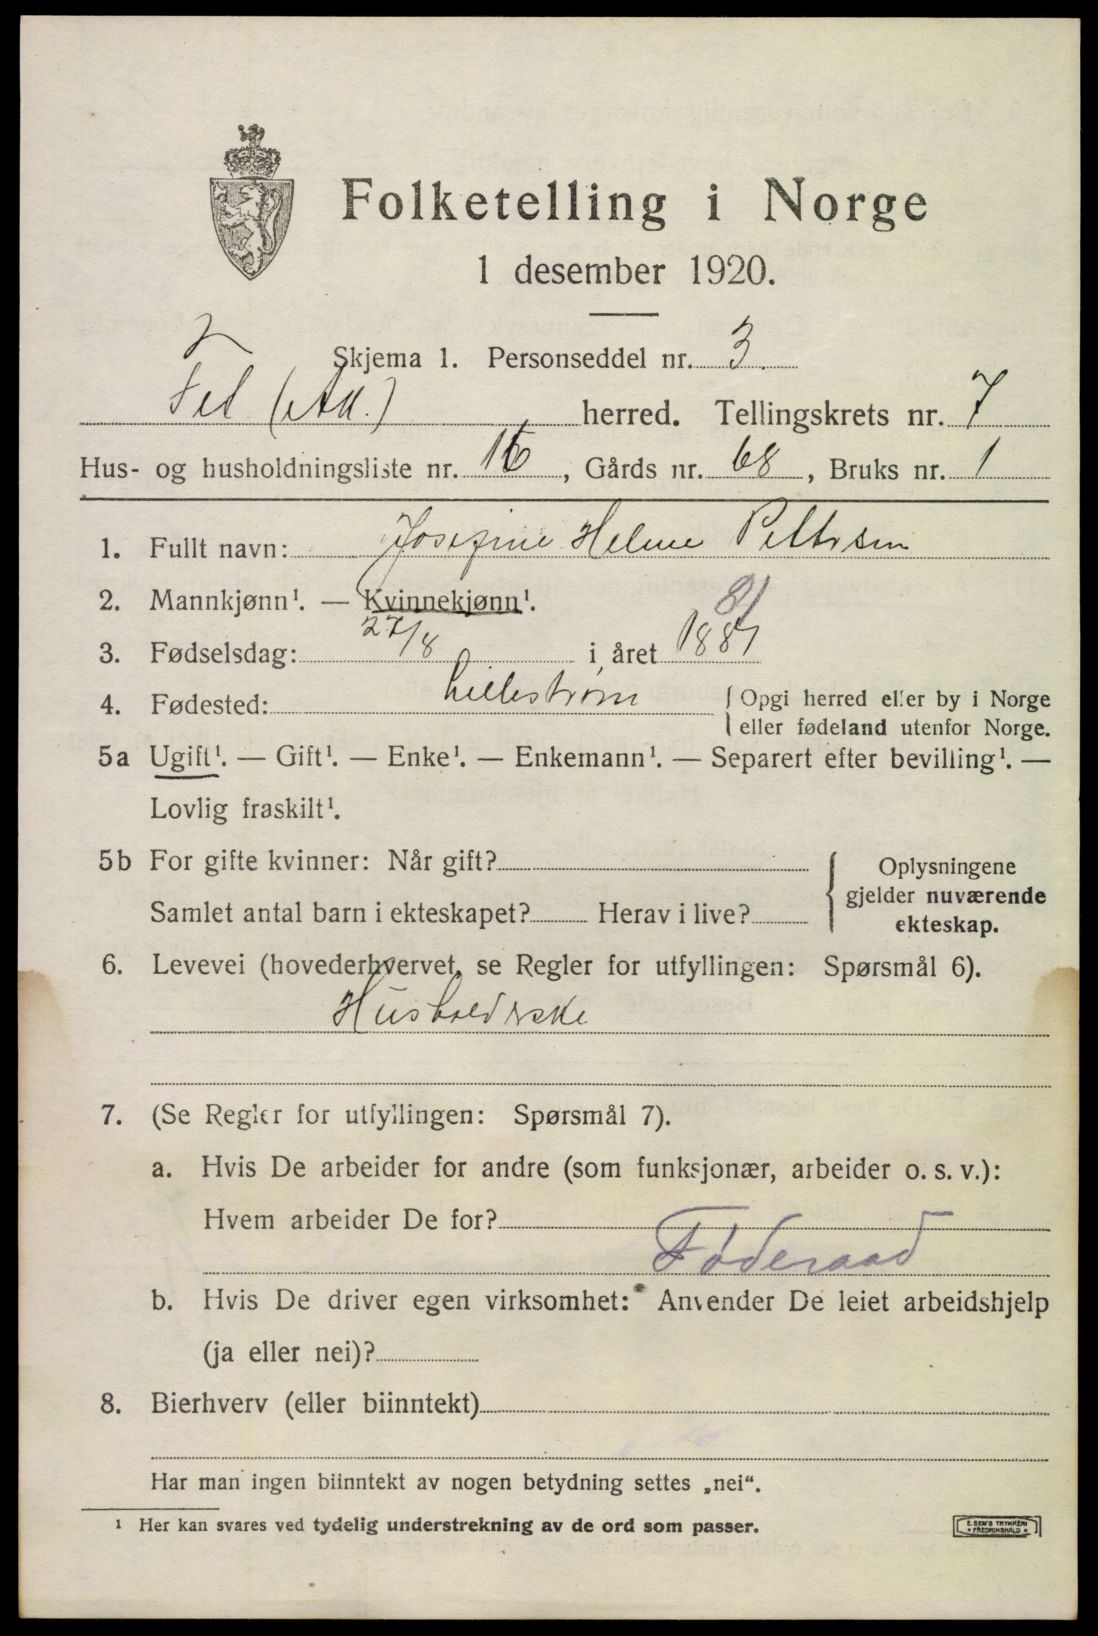 Folketelling i Norge
1 desember 1920.
Skjema 1. Personseddel nr. 3.
Fet (Ak.) herred. Tellingskrets nr. 7
Hus- og husholdningsliste nr. 16, Gårds nr. 68, Bruks nr. 1
1. Fullt navn: Josefine Helene Pettersen
2. Mannkjønn¹. — Kvinnekjønn¹.
81
3. Fødselsdag: 27/8 i året 1881
4. Fødested: Lillestrøm {Opgi herred eller by i Norge
eller fødeland utenfor Norge.
5a Ugift¹. — Gift¹. — Enke¹. — Enkemann¹. — Separert efter bevilling¹. —
Lovlig fraskilt¹.
5b For gifte kvinner: Når gift?
Samlet antal barn i ekteskapet? Herav i live?
{Oplysningene
gjelder nuværende
ekteskap.
6. Levevei (hovederhvervet, se Regler for utfyllingen: Spørsmål 6).
Husholderske
7. (Se Regler for utfyllingen: Spørsmål 7).
a. Hvis De arbeider for andre (som funksjonær, arbeider o. s. v.):
Hvem arbeider De for?
Føderaad
b. Hvis De driver egen virksomhet: Anvender De leiet arbeidshjelp
(ja eller nei)?
8. Bierhverv (eller biinntekt)
Har man ingen biinntekt av nogen betydning settes „nei“.
¹ Her kan svares ved tydelig understrekning av de ord som passer.
E. SEM'S TRYKKERI
• FREDRIKSHALD •